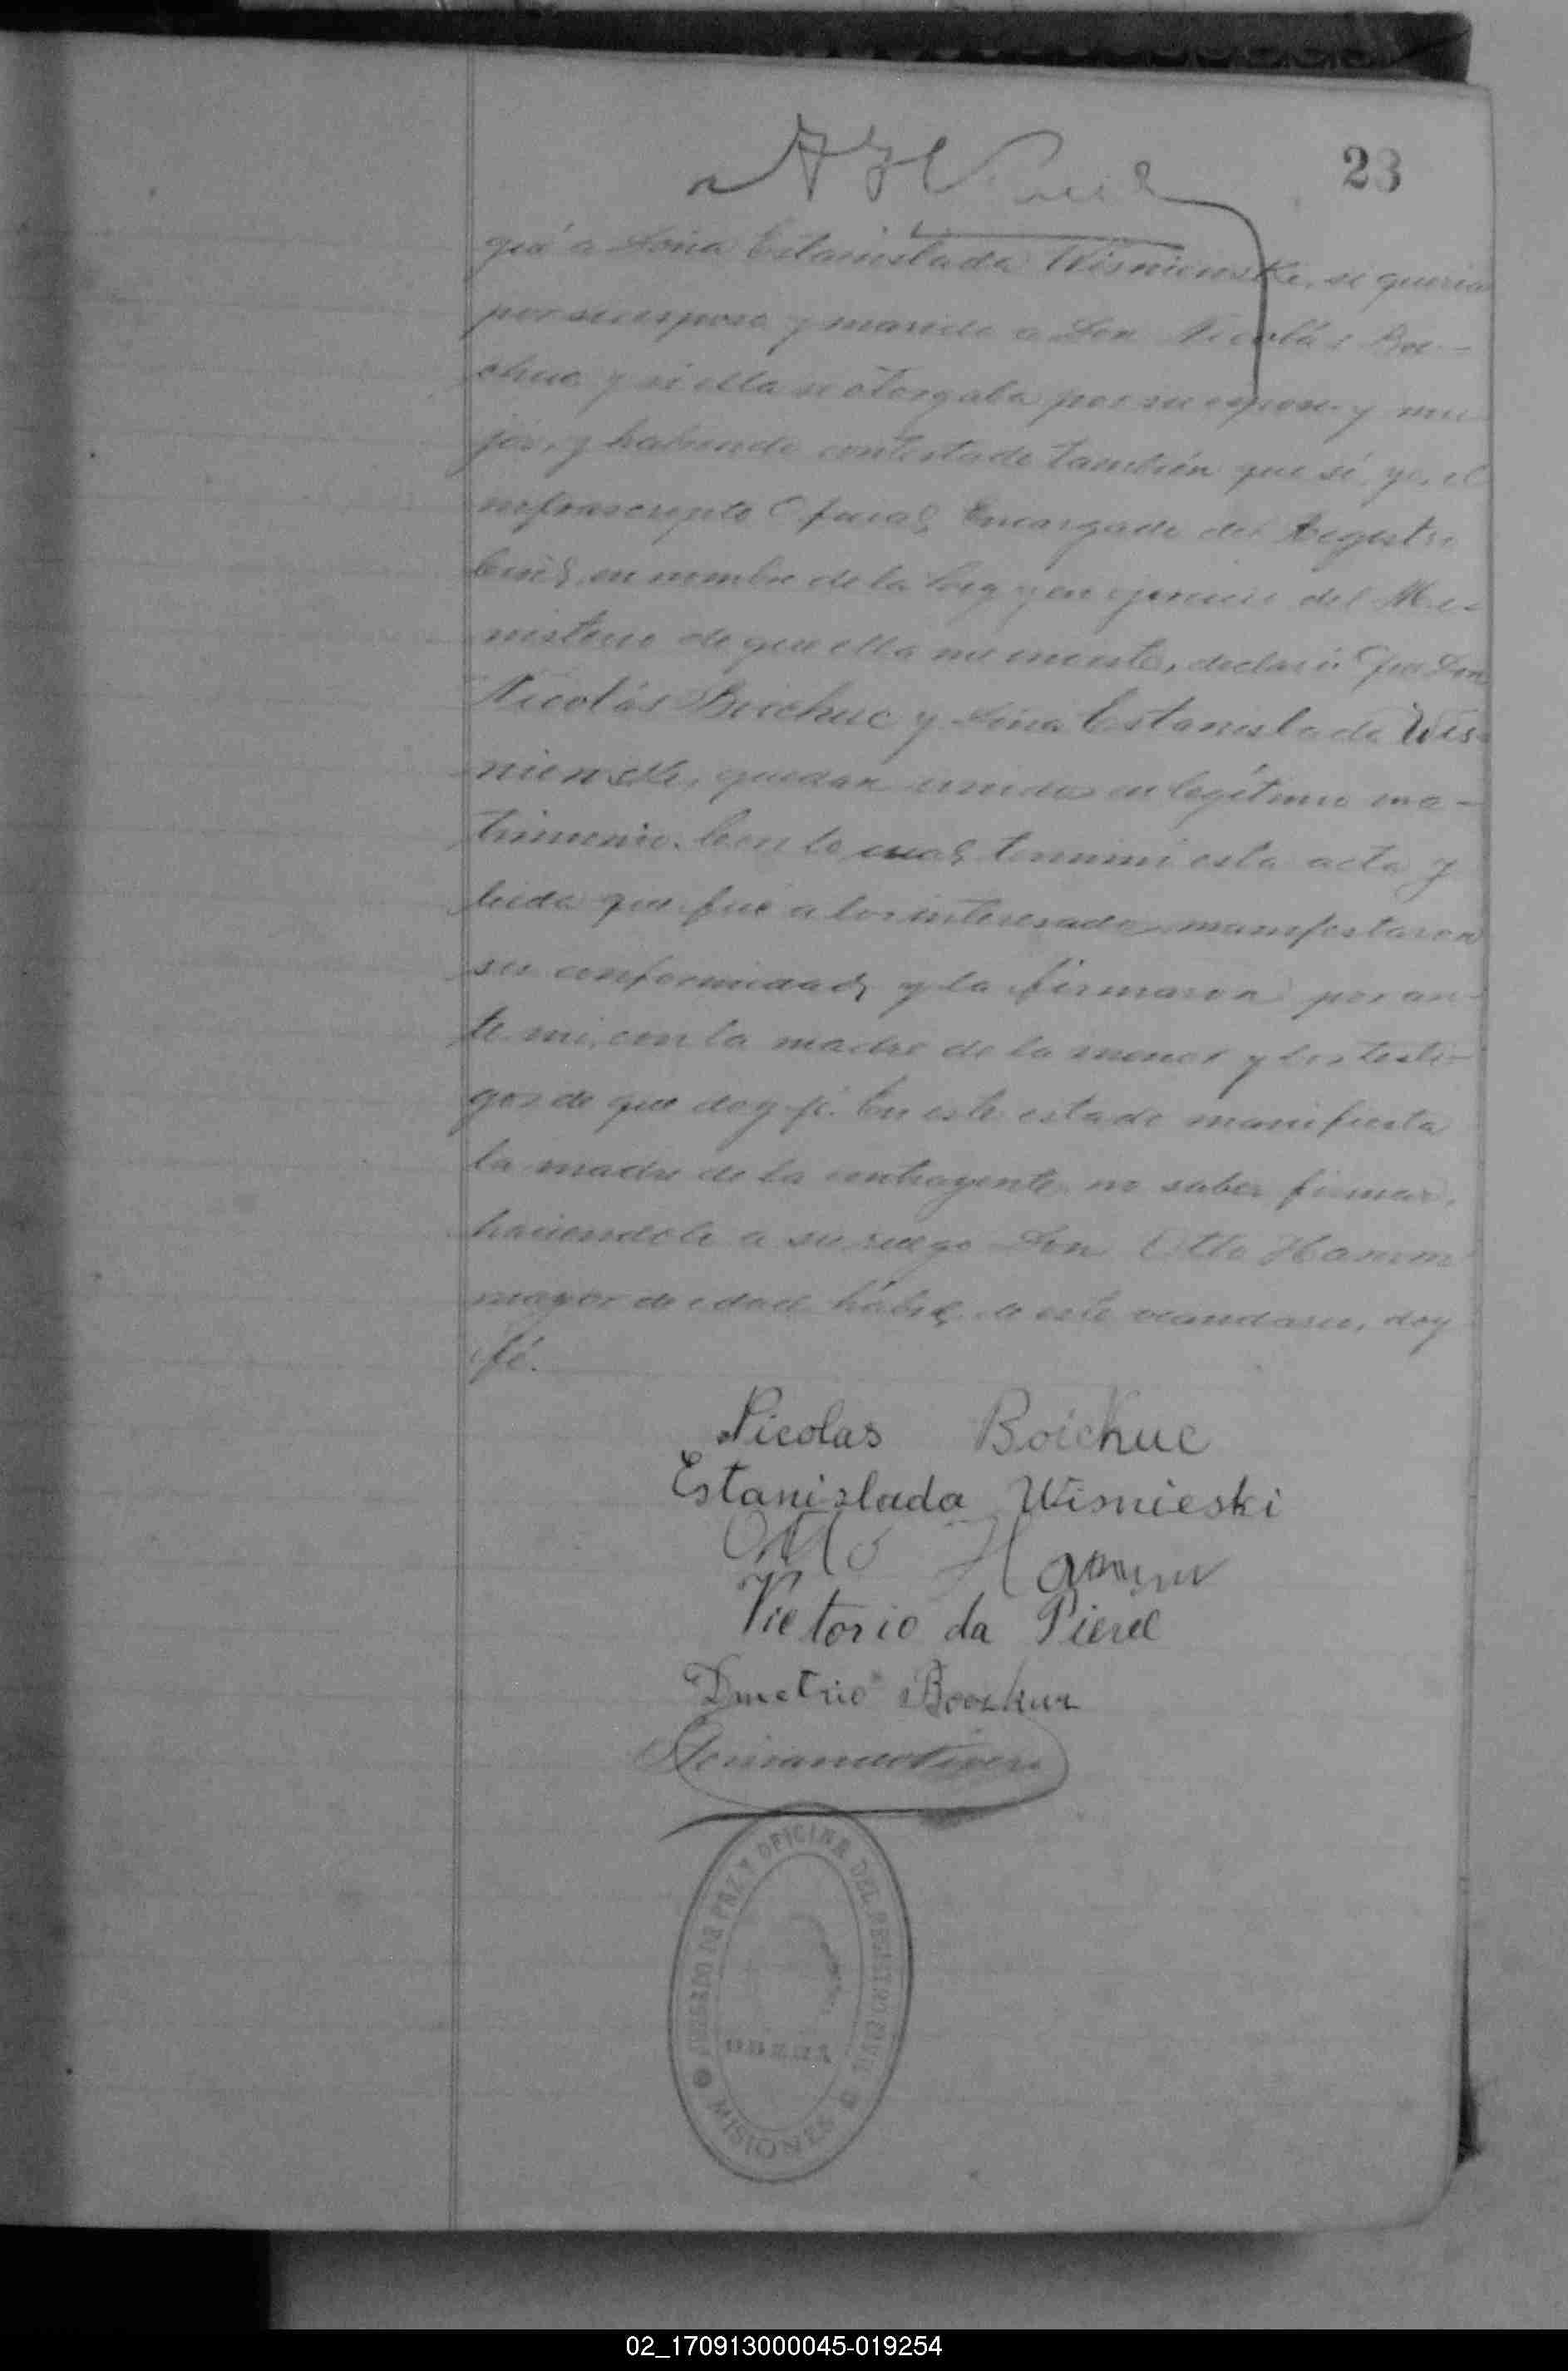 23
gué a Doña Estanislada Wisnienske, si queria
por su esposo y marido a Don Nicolás Boi-
chuc y si ella se otorgaba por su esposa y mu-
jer, y habiendo contestado también que sí, yo, el
infrascripto Oficial Encargado del Registro
Civil, en nombre de la Ley y en ejercicio del Mi-
nisterio de que ella me inviste, declaro: Que Don
Nicolás Boichuc y Doña Estanislada Wis-
nienske, quedan unidos en legítimo ma-
trimonio. Con lo cual terminó esta acta y
leida que fué a los interesados manifestaron
su conformidad y la firmaron por an-
te mi, con la madre de la menor y los testi-
gos de que doy fé. En este estado manifiesta
la madre de la contrayente no saber firmar,
haciendolo a su ruego Don Otto Hamm
mayor de edad hábil, de este vecindario, doy
fé.
Nicolas Boichuc
Estanislada Wisnieski
Otto Hamm
Victorio da
Dmetrio
JUZGADO DE PAZ Y OFICINA DEL REGISTRO CIVIL
OBERÁ
MISIONES
02_170913000045-019254